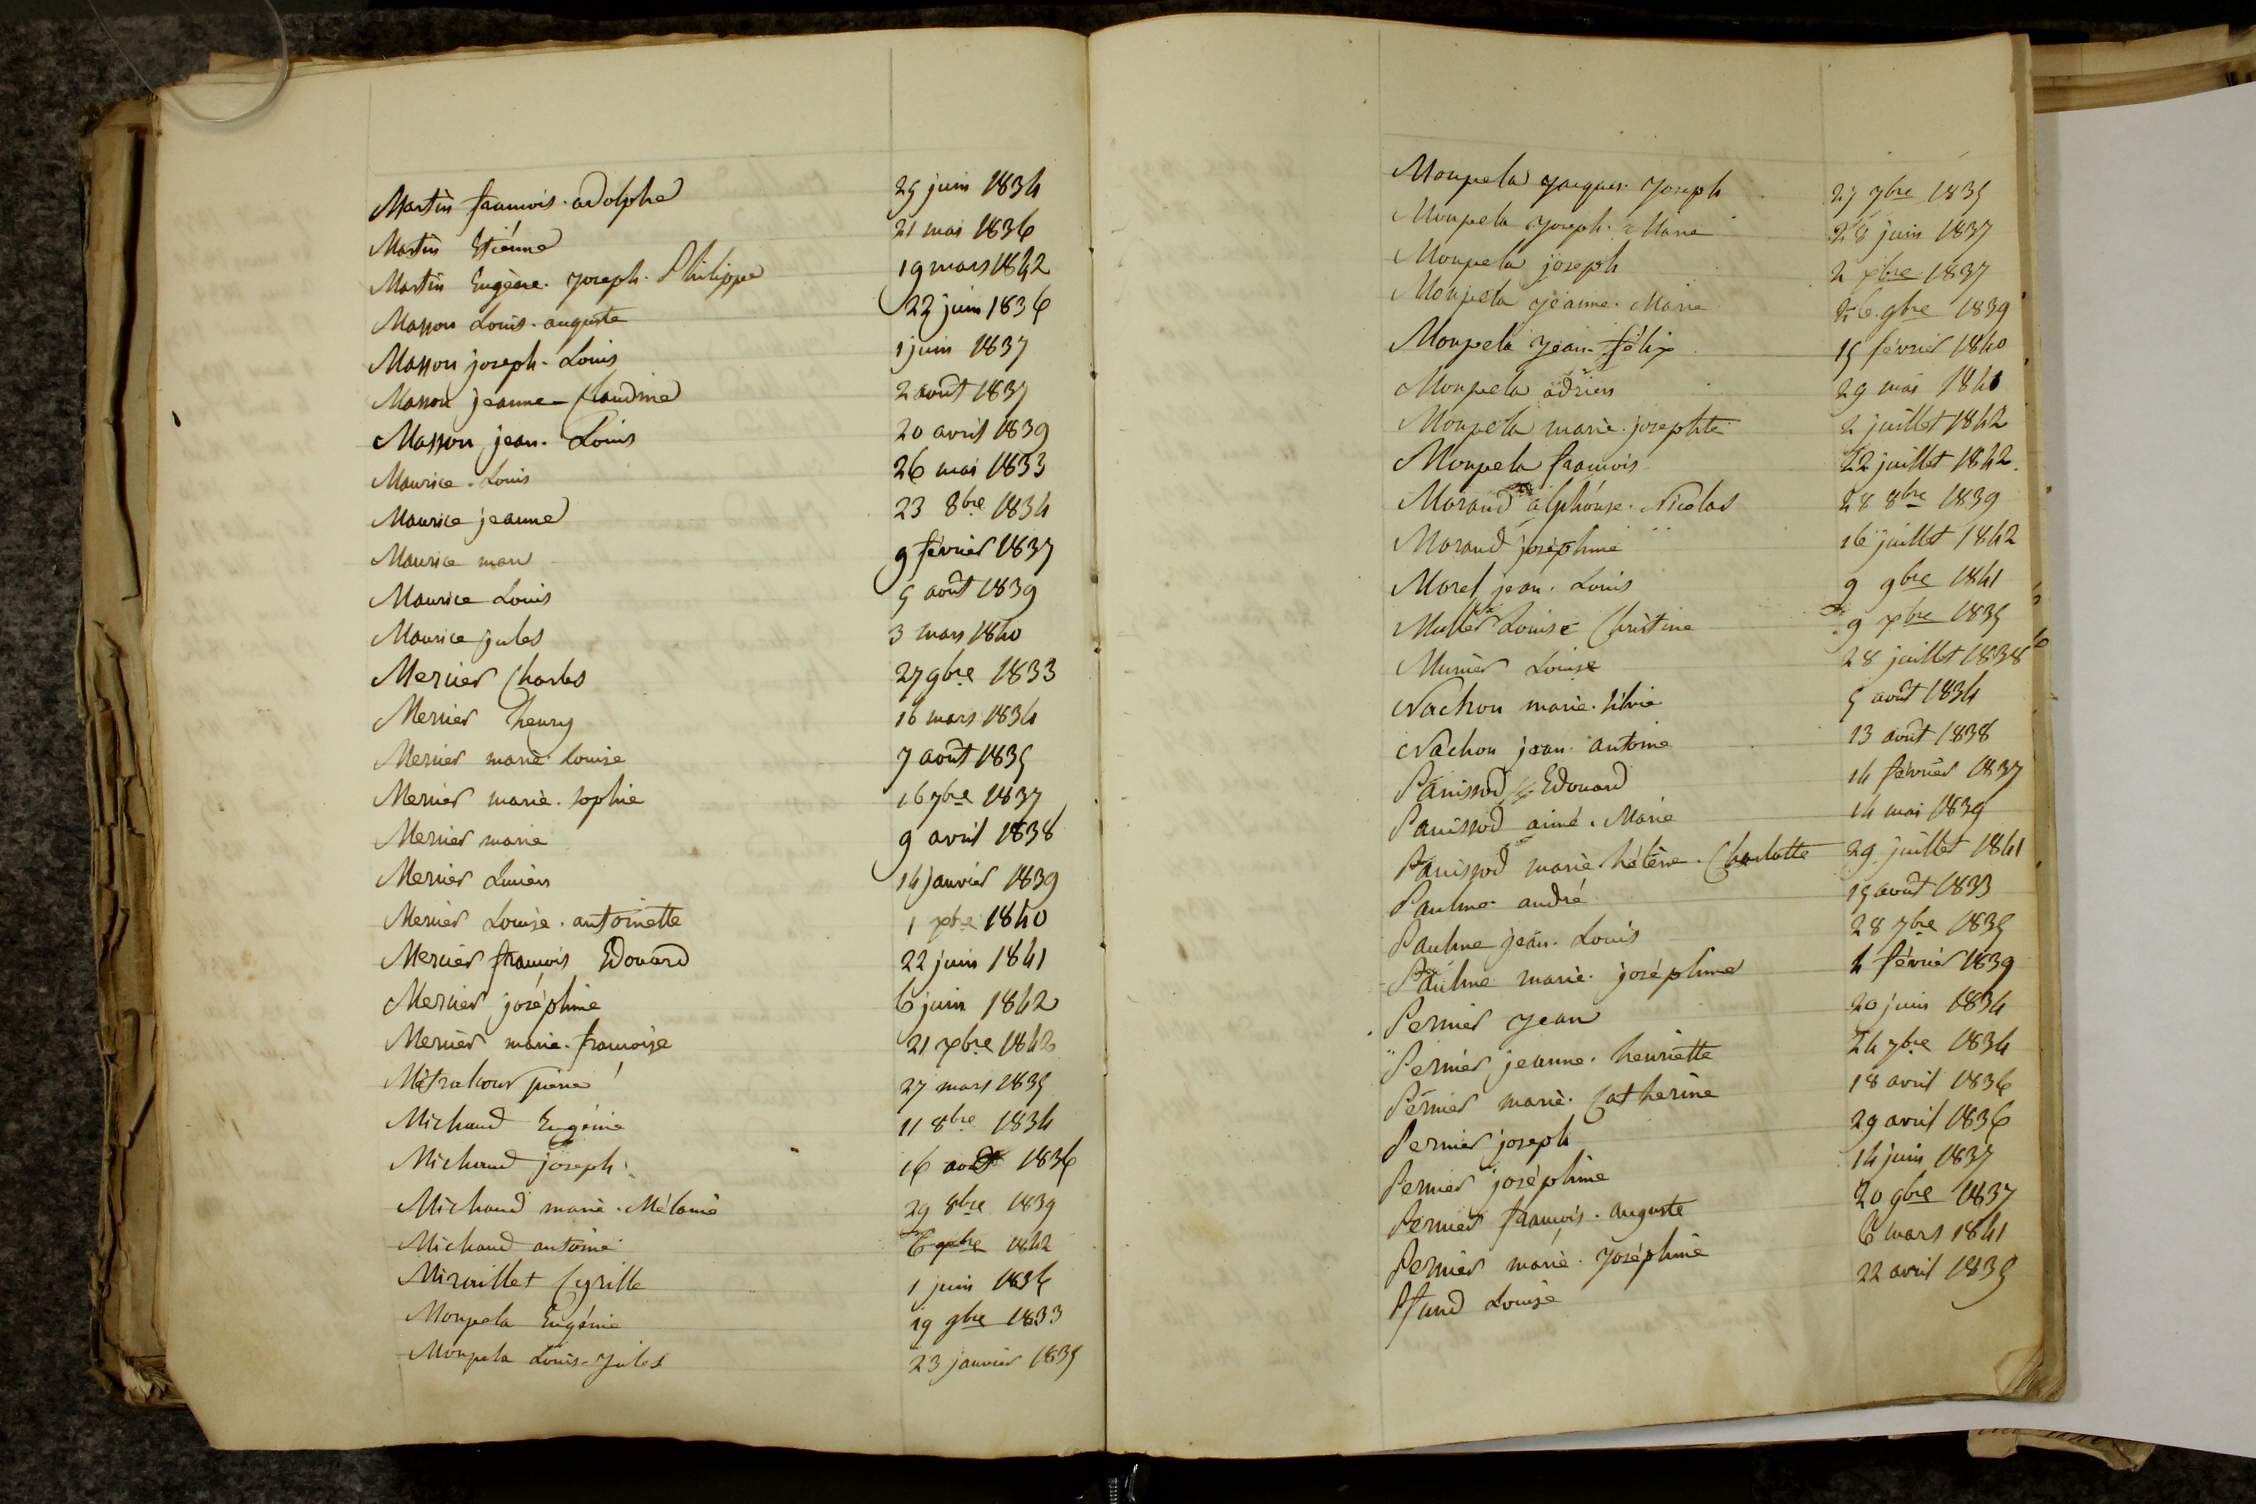 Martin françois. adolphe 25 juin 1834
Martin Etiénne 21 mai 1836
Martin Eugène. Joseph. Philippe 19 mars 1842
Masson Louis. auguste 22 juin 1836
Masson joseph. Louis 1 juin 1837
Masson jeanne - Claudine 2 août 1837
Masson jean. Louis 20 avril 1839
Maurice. Louis 26 mai 1833
Maurice jeanne 23 8bre 1834
Maurice 9 février 1837
Maurice Louis 5 août 1839
Maurice jules 3 mars 1840
Mercier Charles 27 9bre 1833
Mercier henry 16 mars 1834
Mercier marie Louise 7 août 1835
Mercier marie. Sophie 16 7bre 1837
Mercier marie 9 avril 1838
Mercier Lucien 14 janvier 1839
Mercier Louise. antoinette 1 xbre 1840
Mercier françois Edouard 22 juin 1841
Mercier joséphine 6 juin 1842
Mercier marie. françoise 21 xbre 1842
pierre 27 mars 1835
Michaud Eugénie 11 8bre 1834
Michaud joseph 16 août 1836
Michaud marie. Mélanie 29 8bre 1839
Michaud antoine 6 1842
Mirouillet Cyrille 1 juin 1836
Monpela Eugénie 19 9bre 1833
Monpela Louis-Jules 23 janvier 1835
Monpela Jacques. Joseph 27 7bre 1835
Monpela Joseph. Marie 28 juin 1837
Monpela joseph 2 xbre 1837
Monpela Jeanne. Marie 26. 9bre 1839
Monpela Jean. félix 15 février 1840
Monpela adrien 29 mai 1841
Monpela marie. josephte 2 juillet 1842
Monpela françois 22 juillet 1842.
Morand alphonse. Nicolas 28 8bre 1839
Morand joséphine 16 juillet 1842
Morel jean. Louis 9 9bre 1841
Muller Louise Christine 9 xbre 1835
Munier Louise 28 juillet 1838
Nachon marie. silvie 5 août 1834
Nachon jean. antoine 13 août 1838
Panissod Edouard 14 février 1837
Panissod aimé. Marie 14 mai 1839
Panissod marie. hélène. Charlotte 29 juillet 1841
Paulme. andré 15 août 1833
Paulme jean. Louis 28 7bre 1835
Paulme marie. joséphine 4 février 1839
Pernier Jean 20 juin 1834
Pernier jeanne. henriette 24 7bre 1834
Pernier marie. Catherine 18 avril 1836
Pernier joseph 29 avril 1836
Pernier joséphine 14 juin 1837
Pernier françois. auguste 20 9bre 1837
Pernier marie. Joséphine 6 mars 1841
Pfund Louise 22 avril 1835